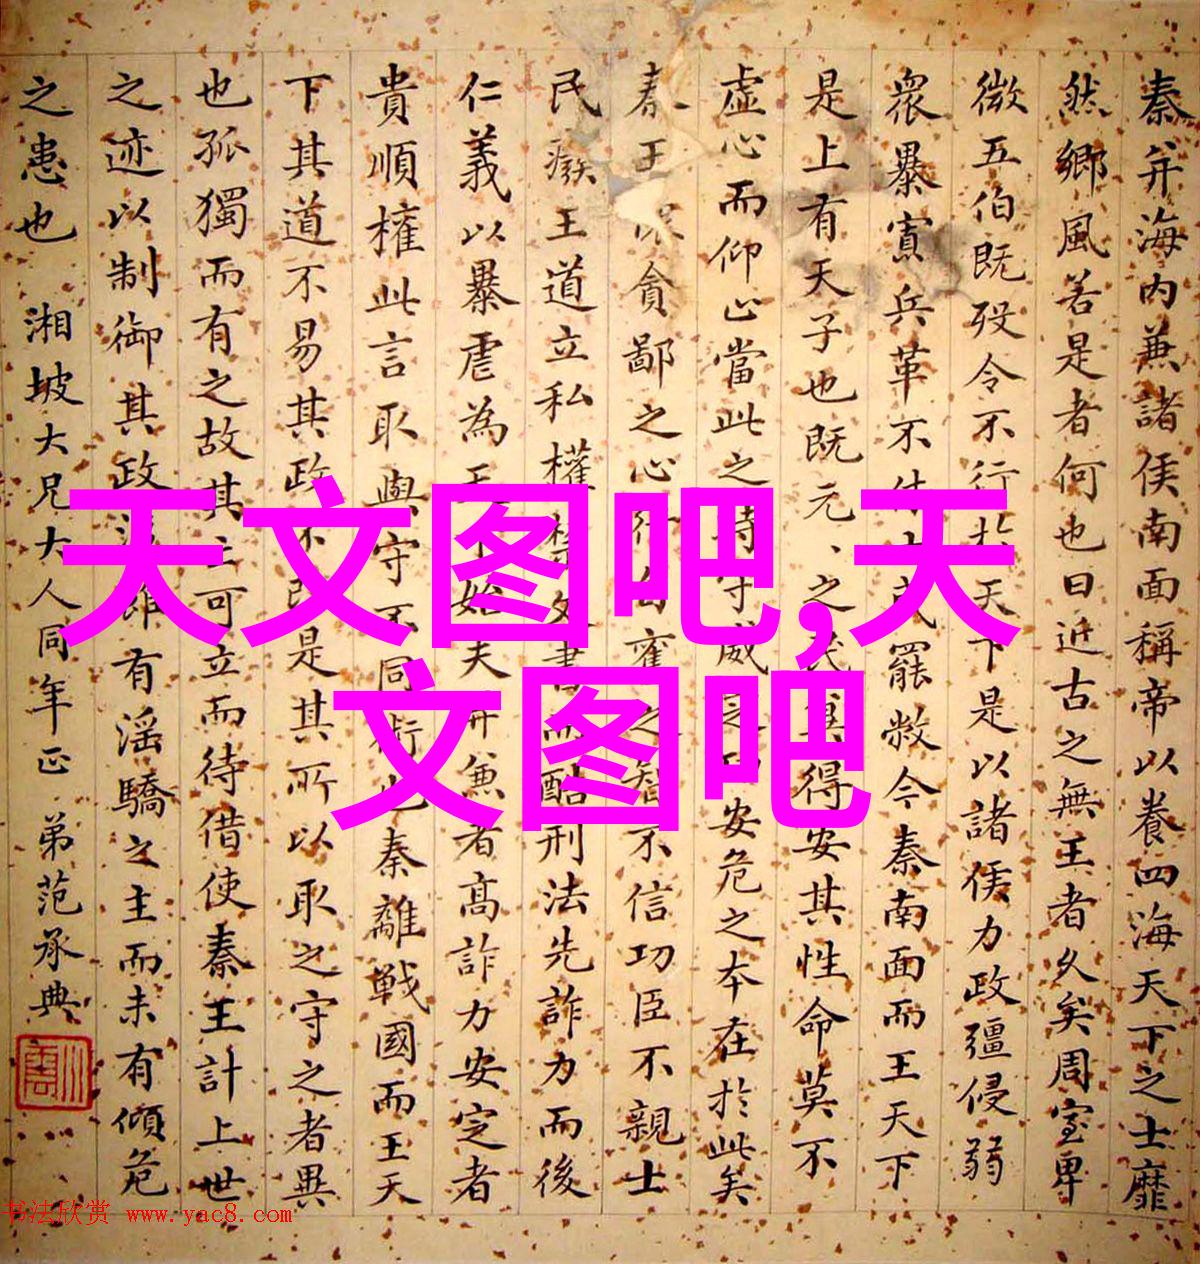 秦并海内兼諸侯南面稱帝以養四海天下之士靡
然鄉風若是者何也曰近古之無王者久矣周室卑
微五伯既歿令不行於天下是以諸侯力政彊侵弱
衆暴寡兵革不休士民罷敝今秦南面而王天下
是上有天子也既元、之民冀得安其性命莫不
虛心而仰上當此之時守威定安危之本在於此矣
秦王貪鄙之心行自奮之智不信功臣不親士
民廢王道立私權禁文書而酷刑法先詐力而後
仁義以暴虐為天下始夫并兼者高詐力安定者
貴順權此言取與守不同術也秦離戰國而王天
下其道不易其政不改是其所以取之守之者異
也孤獨而有之故其亡可立而待借使秦王計上世
之迹以制御其政後雖有滛驕之主而未有傾危
之患也 湘坡大兄大人同年正 弟范承典
天文图吧,天
文图吧
书法欣赏 www.yac8.com